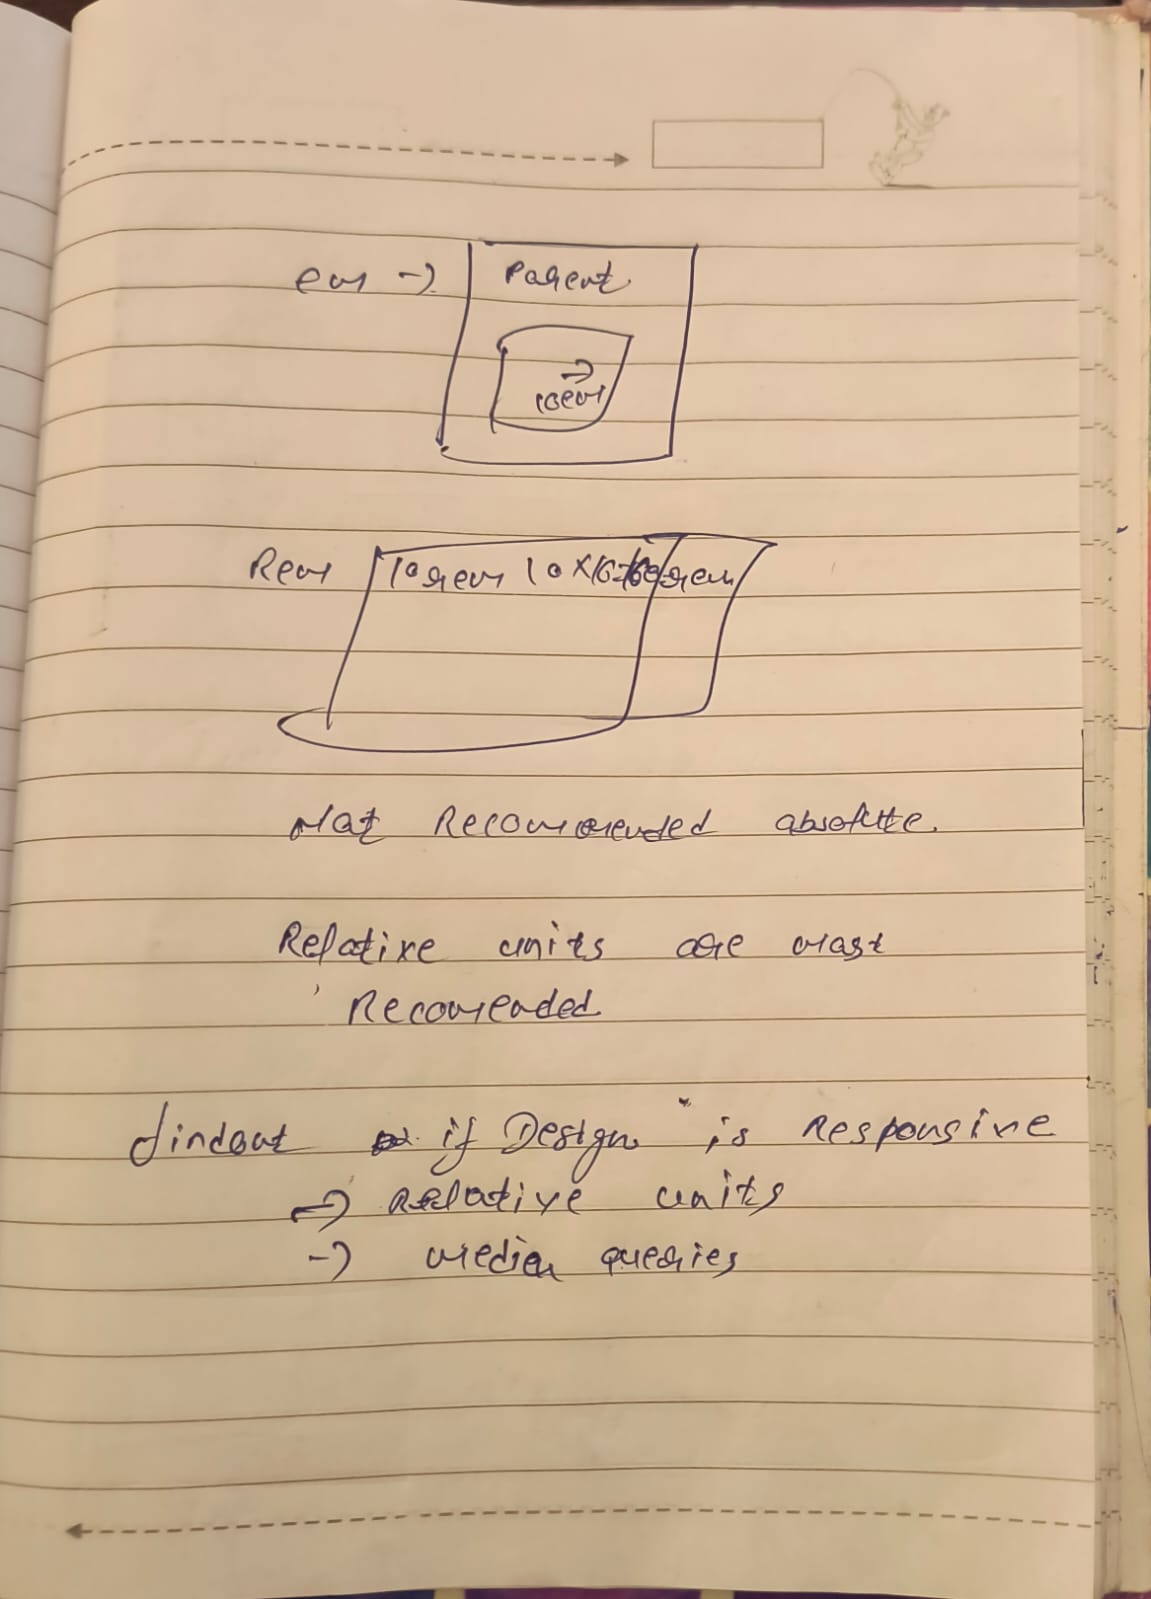 em →
Parent
→
10em
Rem
10rem 10x16=160 rem
Not Recommended absolute.
Relative units are most
Recomended
findout if Design is Responsive
→ Relative units
→ media queries